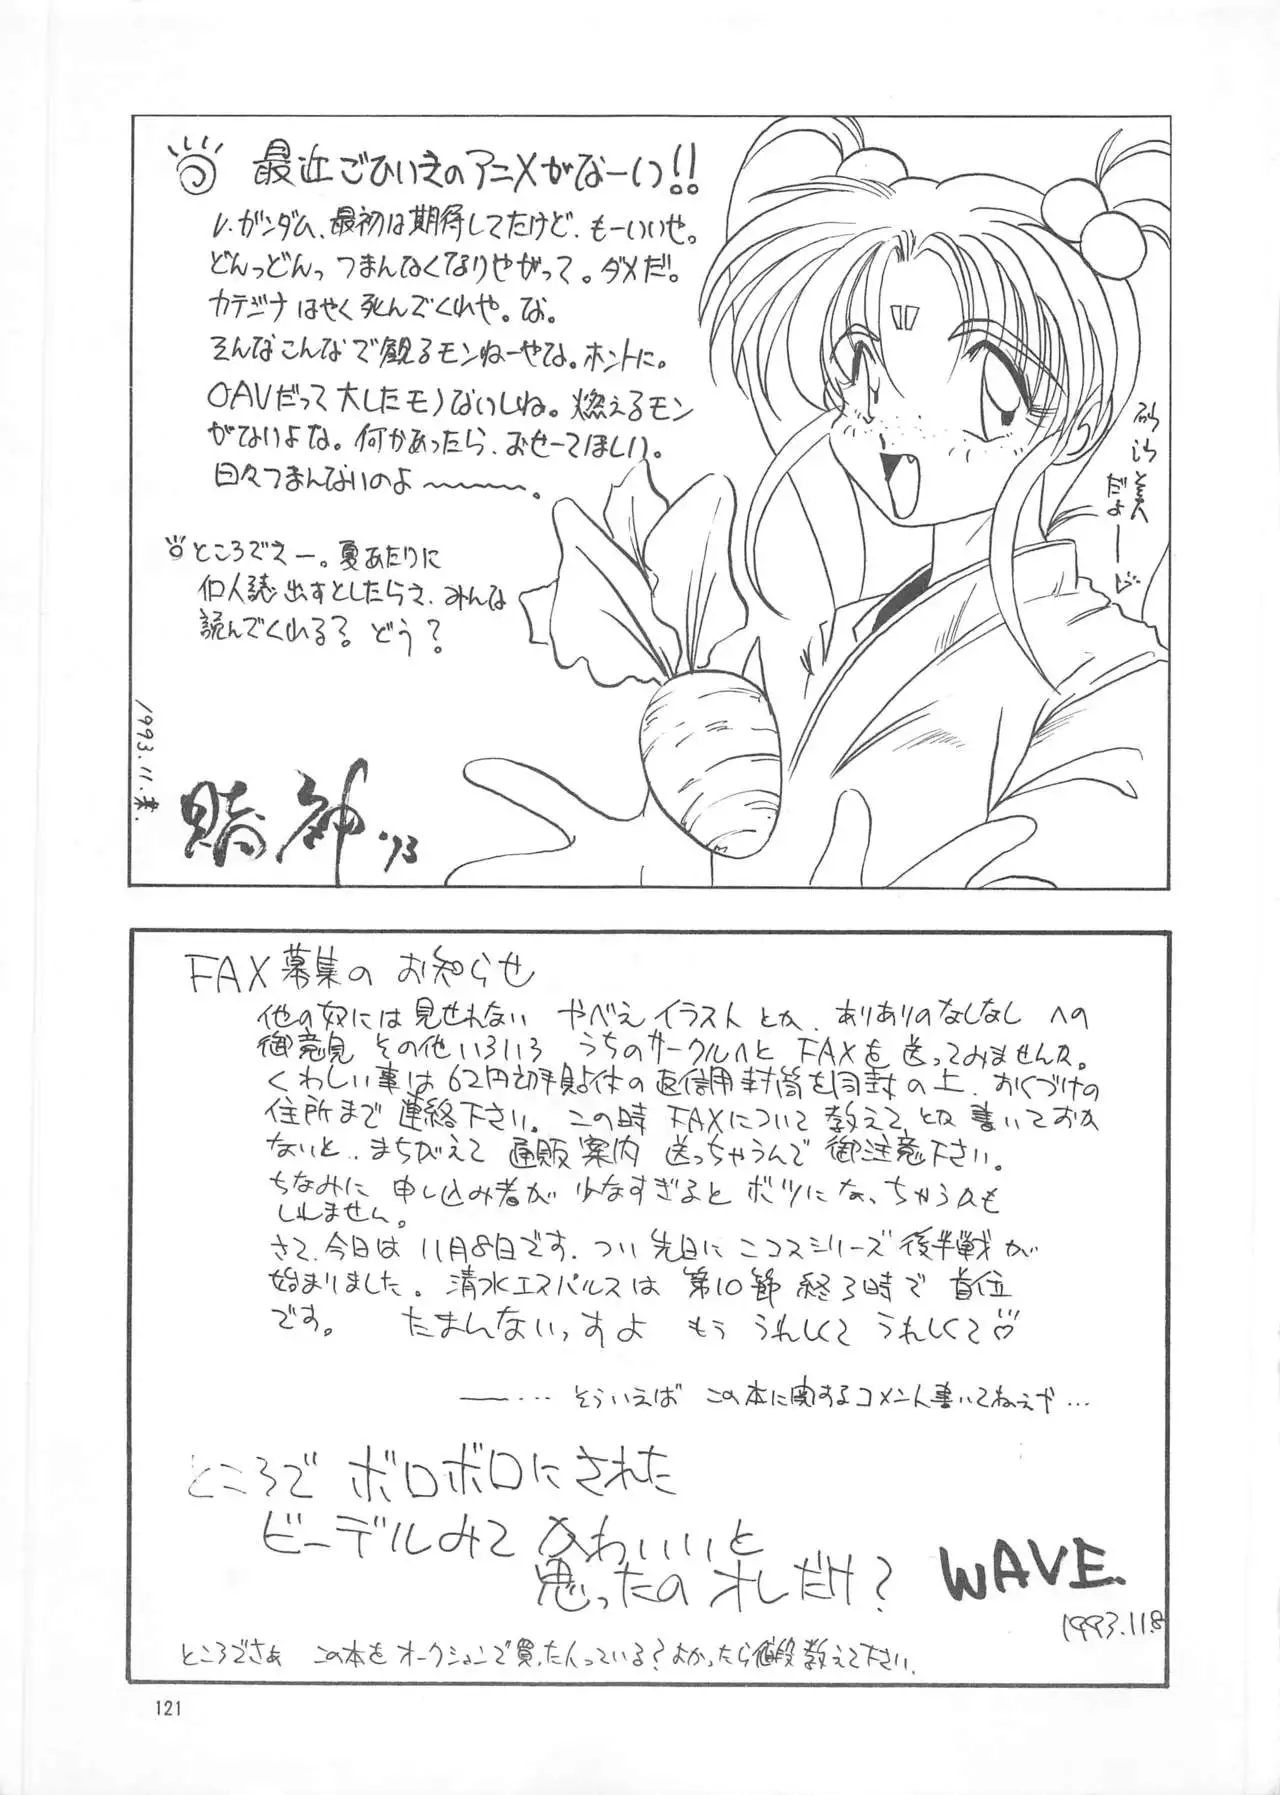 最近ごひいきのアニメがなーいっ!!
V.ガンダム、最初は期待してたけど、もーいいや。
どんっどんっ つまんなくなりやがって。ダメだ。
カテジナ はやく死んでくれや。な。
そんなこんなで観るモンねーやな。ホントに。
OAVだって大したモノないしね。燃えるモン
がないよな。何かあったら、おせーてほしい。
日々つまんないのよ〜〜〜。
ところでえー。夏あたりに
個人誌出すとしたらさ、みんな
読んでくれる? どう?
砂沙美
だよーん
1993.11.末.
賭神 '93
FAX募集の お知らせ
他の奴には見せれない やべえイラストとか、ありありのなしなし への
御意見 その他いろいろ うちのサークルへと FAXを送ってみませんか。
くわしい事は62円切手貼付の返信用封筒を同封の上、おくづけの
住所まで 連絡下さい。この時 FAXについて教えて、とか書いておか
ないと、まちがえて 通販案内 送っちゃうんで御注意下さい。
ちなみに 申し込み者が 少なすぎると ボツになっちゃうかも
しれません。
さて、今日は 11月8日です、つい先日にニコスシリーズ後半戦が
始まりました。清水エスパルスは 第10節 終了時で 首位
です。 たまんないっすよ もう うれしくて うれしくて♡
――… そういえば この本に関するコメント書いてねえや…
ところで ボロボロにされた
ビーデルみて かわいいと
思ったの オレだけ?
WAVE.
1993.11.8
ところでさぁ この本をオークションで買った人っている? よかったら値段教えて下さい。
121